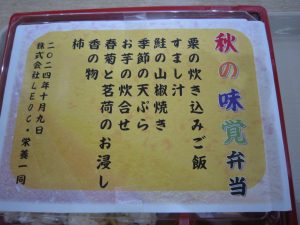 秋の味覚弁当
栗の炊き込みご飯
すまし汁
鮭の山椒焼き
季節の天ぷら
お芋の炊合せ
春菊と茗荷のお浸し
香の物
柿
二〇二四年十月九日
株式会社LEOC・栄養一同